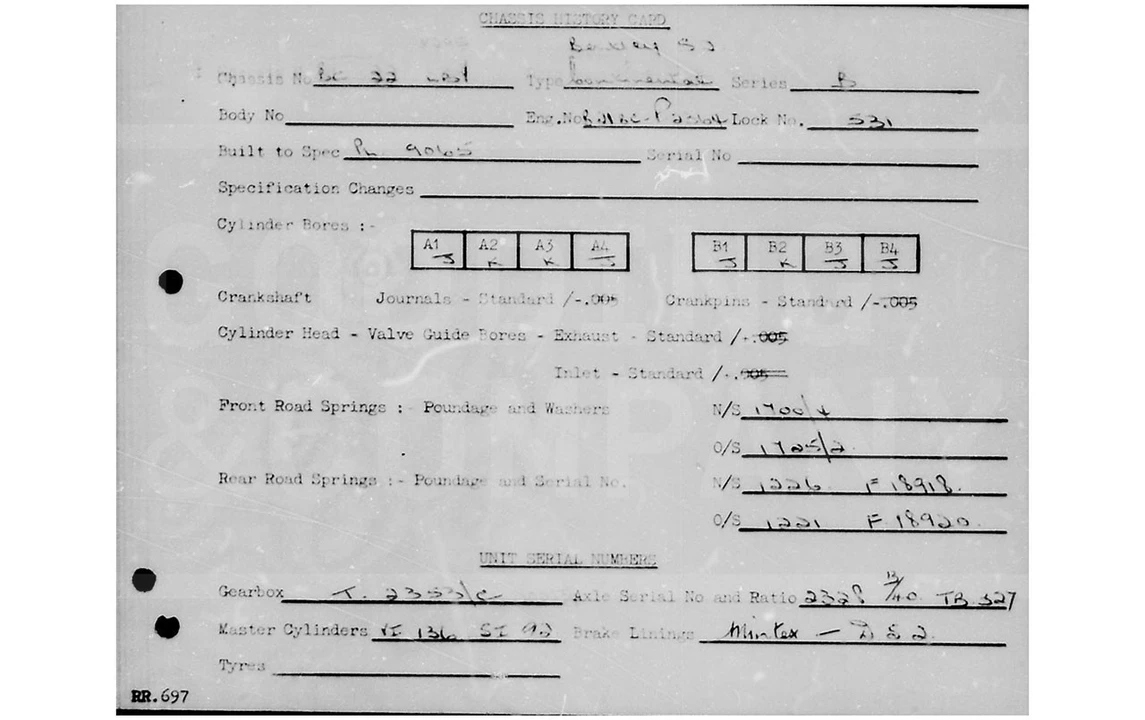 CHASSIS HISTORY CARD
Bentley S3
Chassis No BC 22 Type Continental Series B
Body No Eng.No Lock No. 531
Built to Spec 9065 Serial No
Specification Changes
Cylinder Bores :-
A1 A2 A3 A4 B1 B2 B3 B4
J K K J J K J J
Crankshaft Journals - Standard /-.005 Crankpins - Standard /-.005
Cylinder Head - Valve Guide Bores - Exhaust - Standard /-.005
Inlet - Standard /-.005
Front Road Springs :- Poundage and Washers N/S 1700/4
O/S 1725/2
Rear Road Springs :- Poundage and Serial No. N/S 1226 F 18918.
O/S 1221 F 18920.
UNIT SERIAL NUMBERS
Gearbox T. 2353/C Axle Serial No and Ratio 2328 13/40. TB 327
Master Cylinders 136 92 Brake Linings Mintex —
Tyres
RR.697